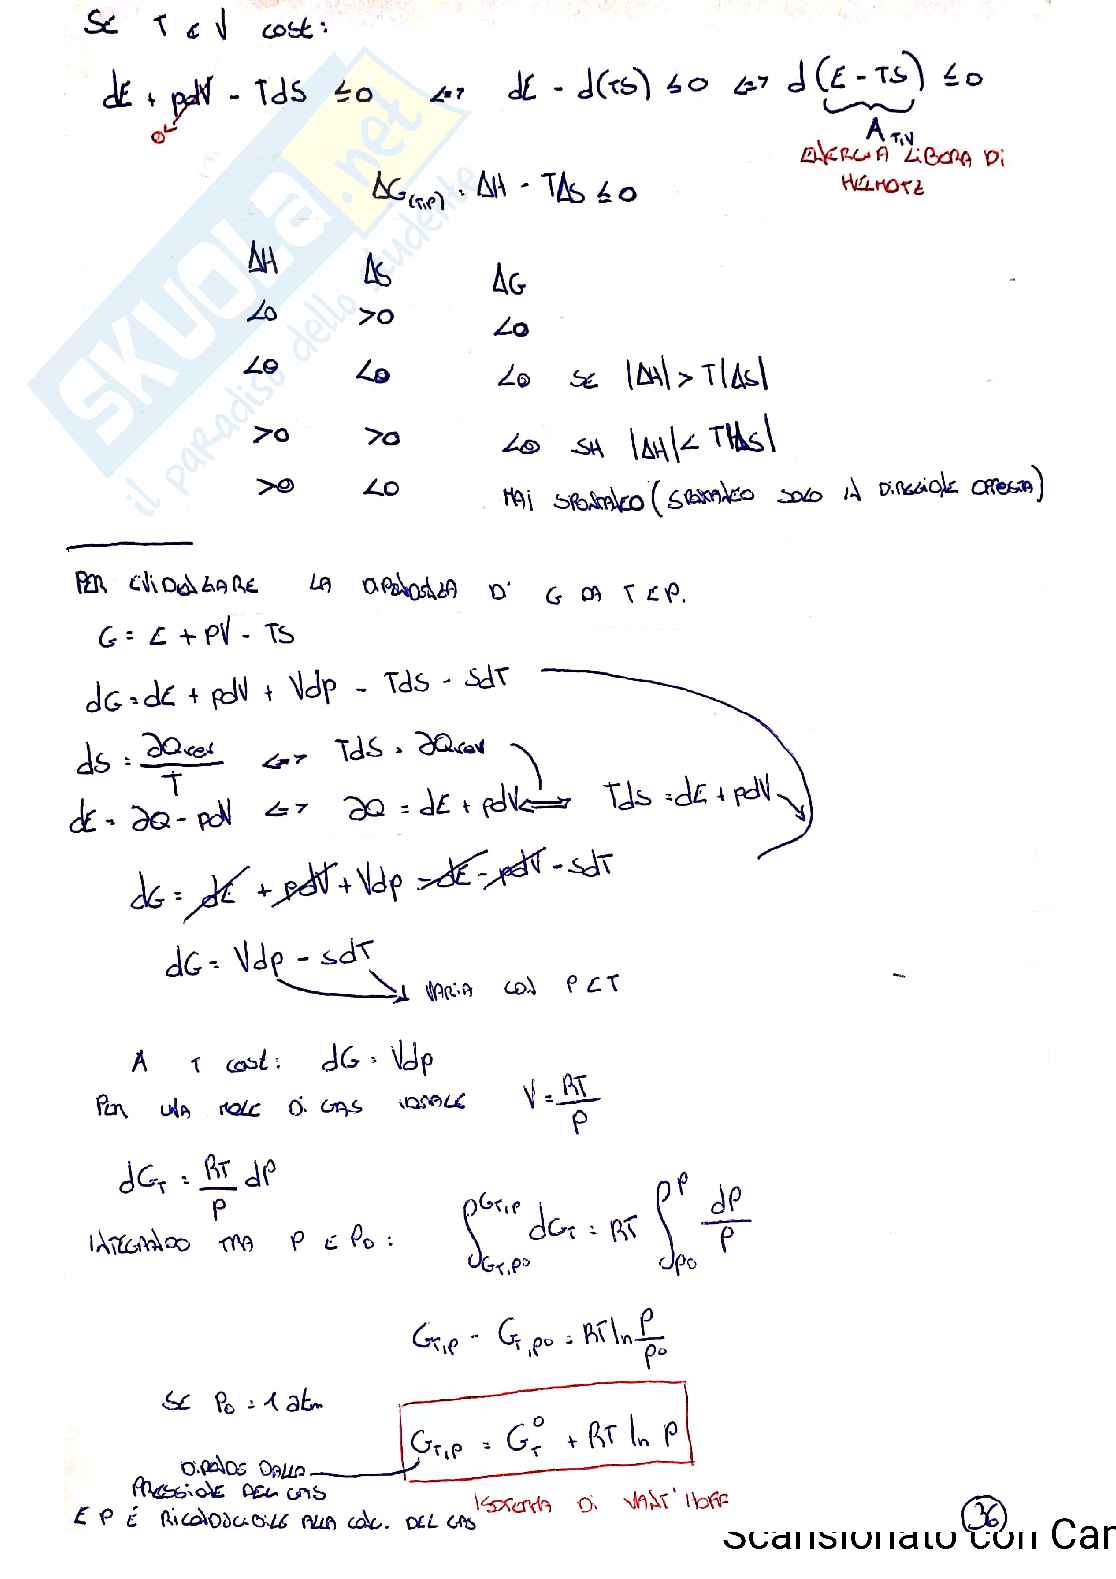 SE T E V cost:
dE + pdV - TdS ≤0 <=> dE - d(TS) ≤0 <=> d(E - TS) ≤0
0
A T,V
ENERGIA LIBERA DI
HELMOTZ
ΔG(T,P) = ΔH - TΔS ≤0
ΔH ΔS ΔG
<0 >0 <0
<0 <0 <0 SE |ΔH| > T|ΔS|
>0 >0 <0 SH |ΔH| < T|ΔS|
>0 <0 MAI SPONTANEO (SPONTANEO SOLO IN DIREZIONE OPPOSTA)
PER EVIDENZIARE LA DIPENDENZA DI G DA T E P.
G = E + PV - TS
dG = dE + pdV + Vdp - TdS - SdT
dS = ∂Qrev/T <=> TdS = ∂Qrev
dE = ∂Q - pdV <=> ∂Q = dE + pdV <=> TdS = dE + pdV
dG = dE + pdV + Vdp - dE - pdV - SdT
dG = Vdp - SdT
VARIA CON P E T
A T cost: dG = Vdp
PER UNA MOLE DI GAS IDEALE V = RT/P
dG_T = RT/P dP
INTEGRANDO TRA P E P0: ∫_{G_T,P0}^{G_T,P} dG_T = RT ∫_{P0}^{P} dP/P
G_T,P - G_T,P0 = RT ln P/P0
SE P0 = 1 atm
G_T,P = G_T^0 + RT ln P
DIPENDE DALLA
PRESSIONE DEL GAS
ISOTERMA DI VANT'HOFF
E P È RICONDUCIBILE ALLA CONC. DEL GAS
36
Scansionato con Cam
SKUOLA.net
il paradiso dello studente